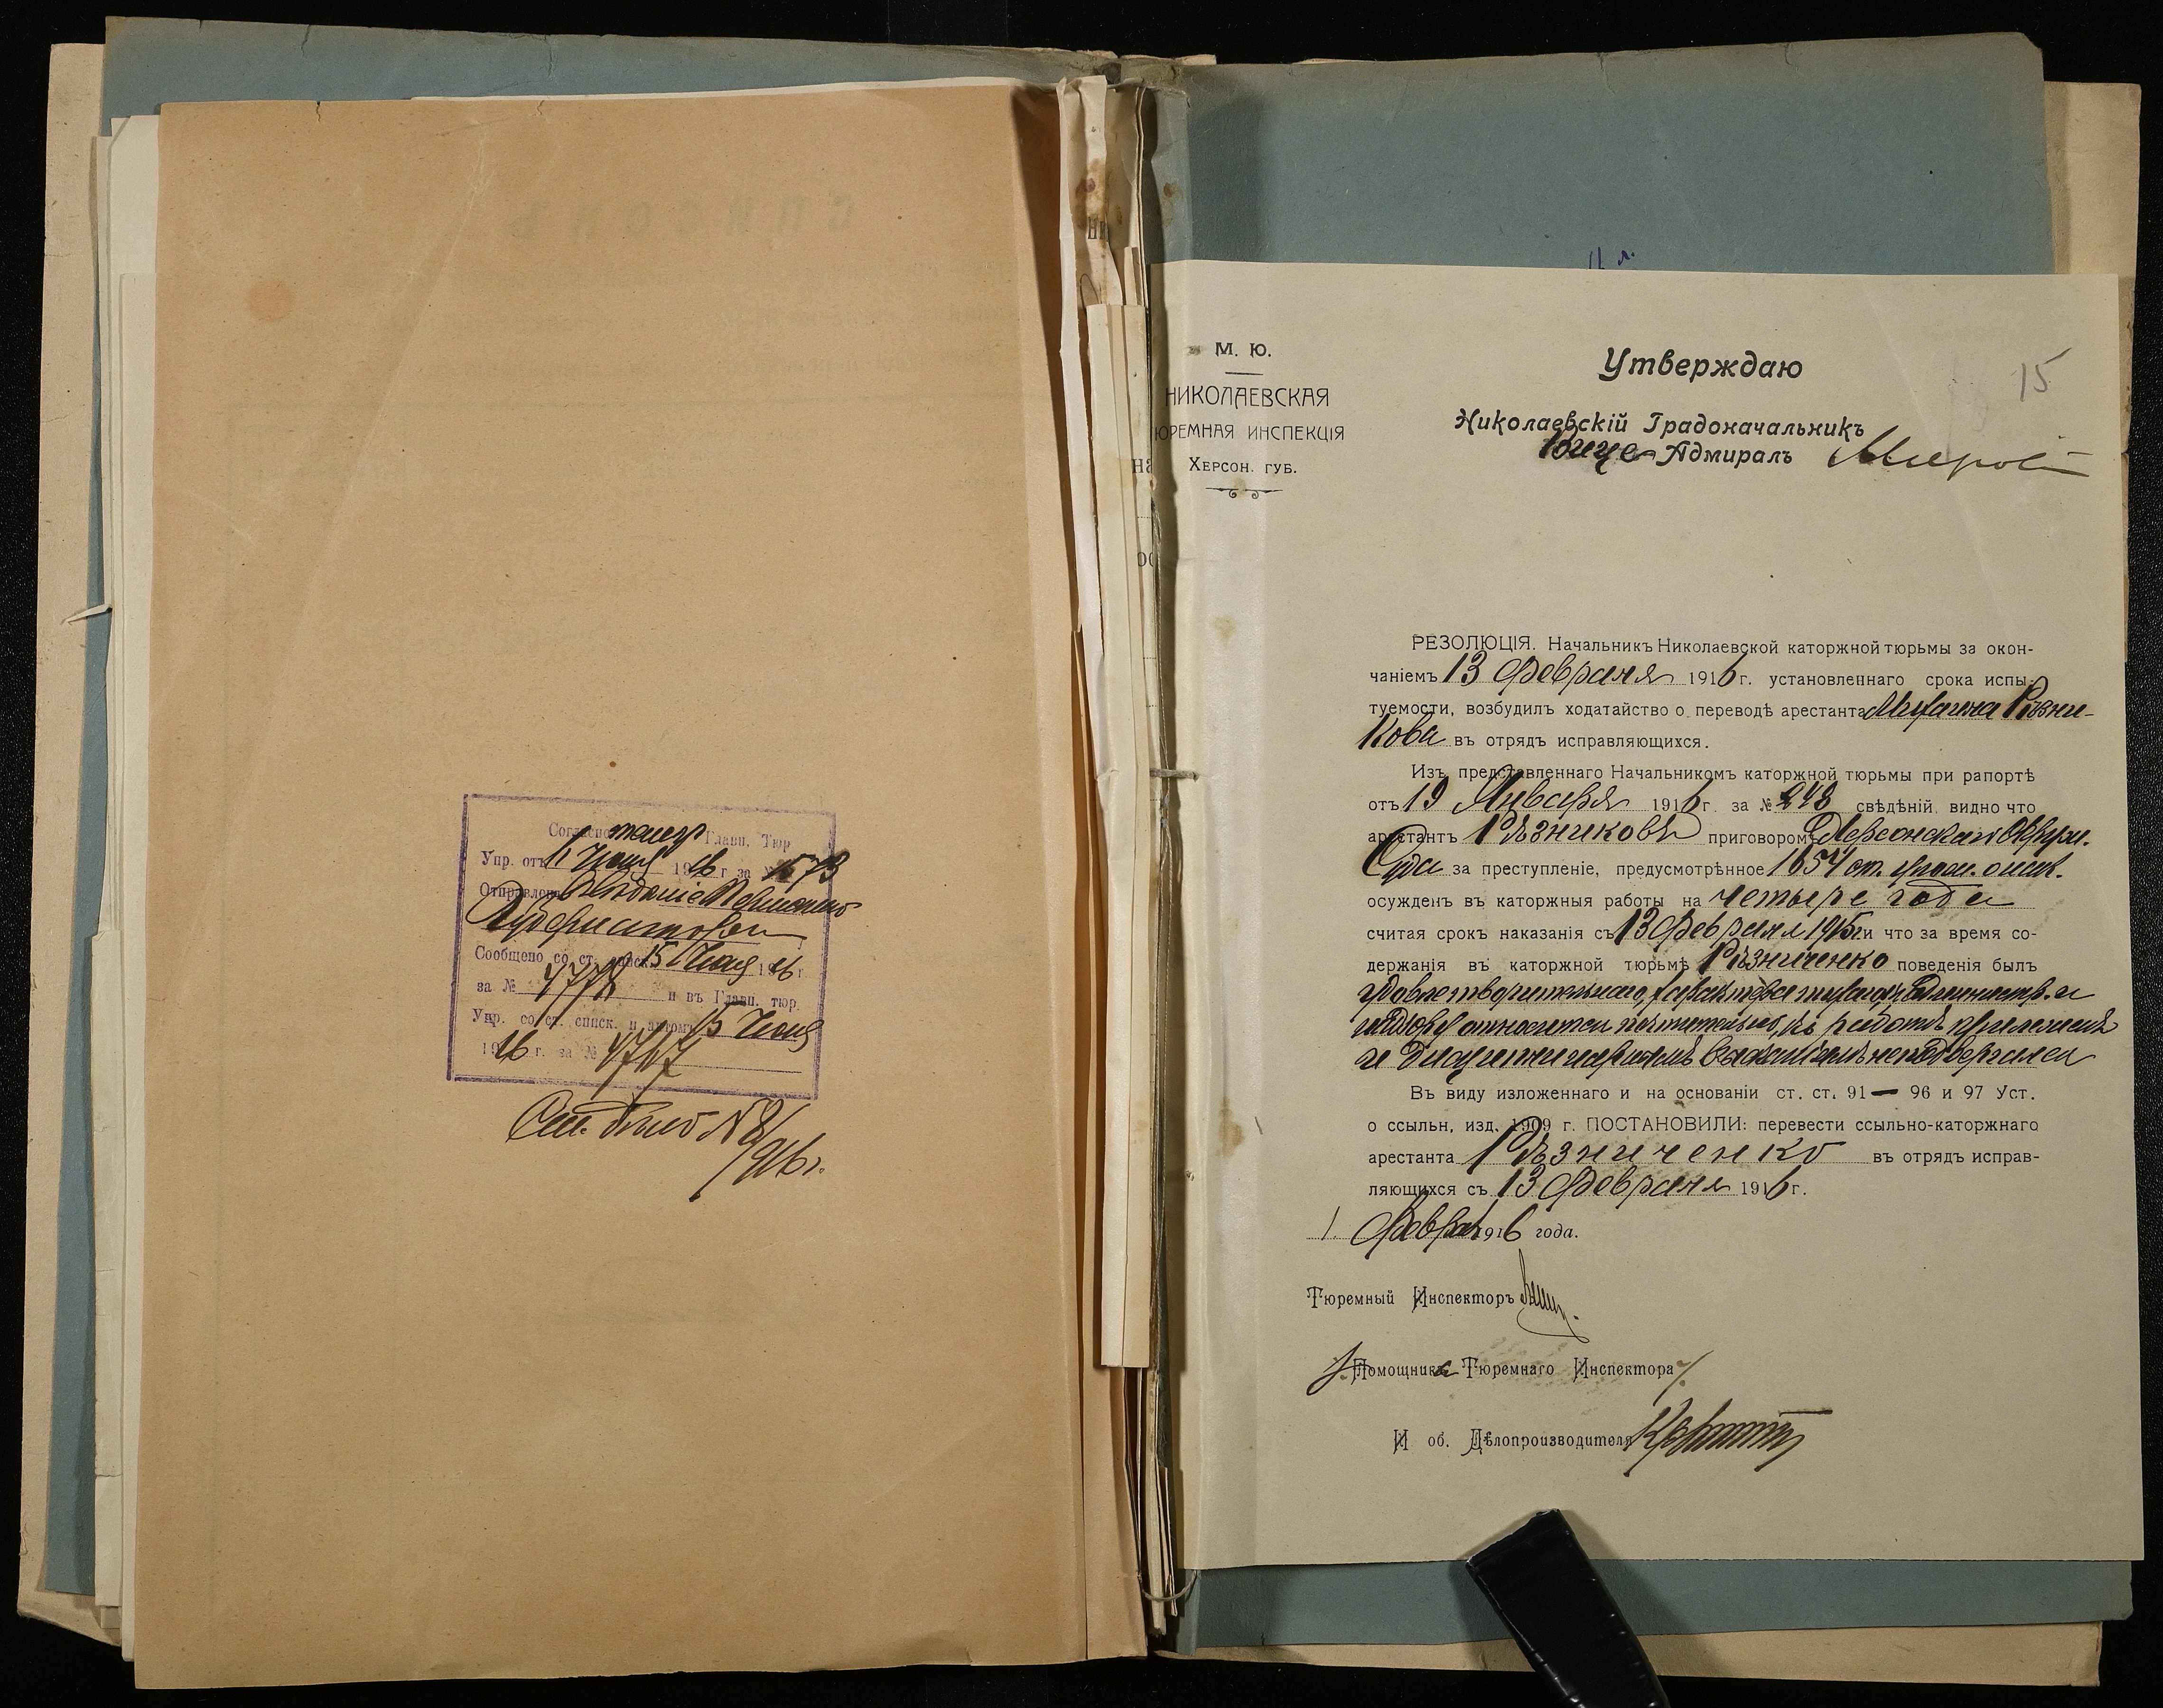 Согласно телегр Главн. Тюр
Упр. отъ 11 Июня 1916 г за № 1573
Отправленъ
Сообщено со ст. списк. 15 Июня 1916 г
за № 4778 и въ Главн. тюр.
Упр. со ст. списк. и 15 Июня
1916 г. за № 4767
См. дѣло № 8/
916 г.
15
М. Ю.
НИКОЛАЕВСКАЯ
ЮРЕМНАЯ ИНСПЕКЦІЯ
ХЕРСОН. ГУБ.
Утверждаю
Николаевскій Градоначальникъ
Вице-Адмиралъ
РЕЗОЛЮЦІЯ. Начальникъ Николаевской каторжной тюрьмы за окон-
чаніемъ 13 Февраля 1916 г. установленнаго срока испы-
туемости, возбудилъ ходатайство о переводѣ арестанта Рѣзни-
кова въ отрядъ исправляющихся.
Изъ представленнаго Начальникомъ каторжной тюрьмы при рапортѣ
отъ 19 Января 1916 г. за № 248 свѣдѣній видно что
арестантъ Рѣзниковъ приговоромъ Херсонскаго Окружн.
Суда за преступленіе, предусмотрѣнное 1654 ст. улож. о нак.
осужденъ въ каторжныя работы на четыре года
считая срокъ наказанія съ 13 Февраля 1915 г. и что за время со-
держанія въ каторжной тюрьмѣ Рѣзниченко поведенія былъ
удовлетворительнаго, характера тихаго, къ Администр. и
надзору относится почтительно, къ работѣ прилеженъ
и дисциплинарнымъ взысканіямъ не подвергался
Въ виду изложеннаго и на основаніи ст. ст. 91 — 96 и 97 Уст.
о ссыльн, изд. 1909 г. ПОСТАНОВИЛИ: перевести ссыльно-каторжнаго
арестанта Рѣзниченко въ отрядъ исправ-
ляющихся съ 13 Февраля 1916 г.
1. Февраля 1916 года.
Тюремный Инспекторъ
Помощника Тюремнаго Инспектора
И об. Дѣлопроизводителя